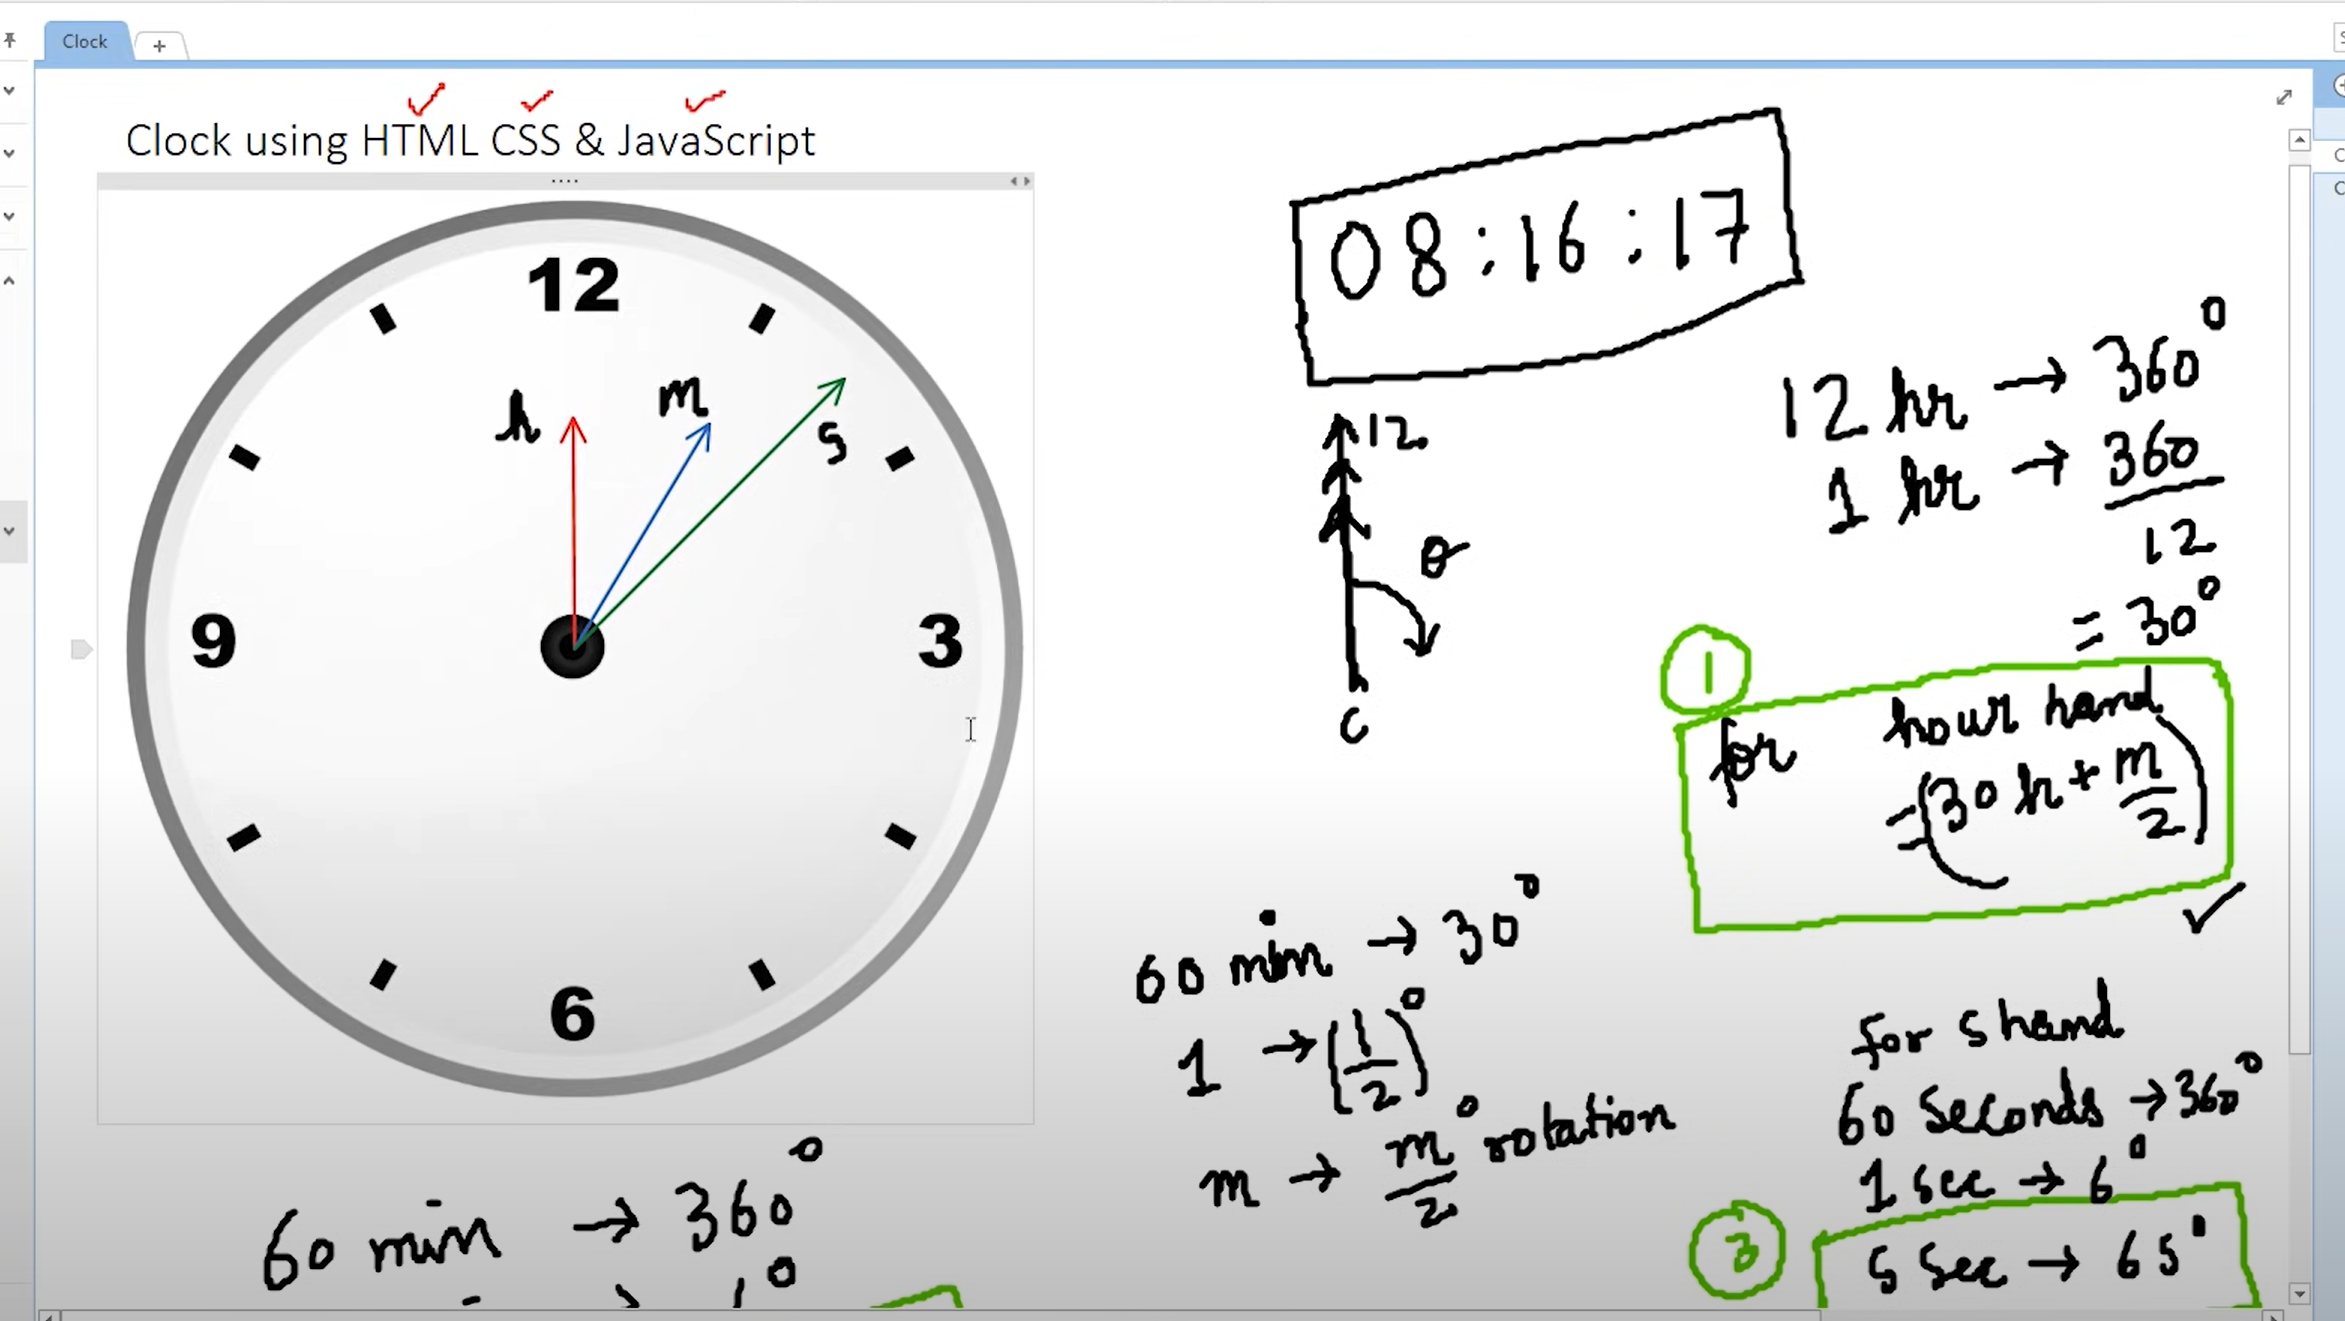 Clock
Clock using HTML CSS & JavaScript
12
3
6
9
h
m
s
08:16:17
12
θ
C
12 hr → 360°
1 hr → 360/12
= 30°
1
for hour hand
=(30h+m/2)
60 min → 30°
1 → (1/2)°
m → m/2° rotation
for s hand
60 seconds → 360°
1 sec → 6°
3
s sec → 6s°
60 min → 360°